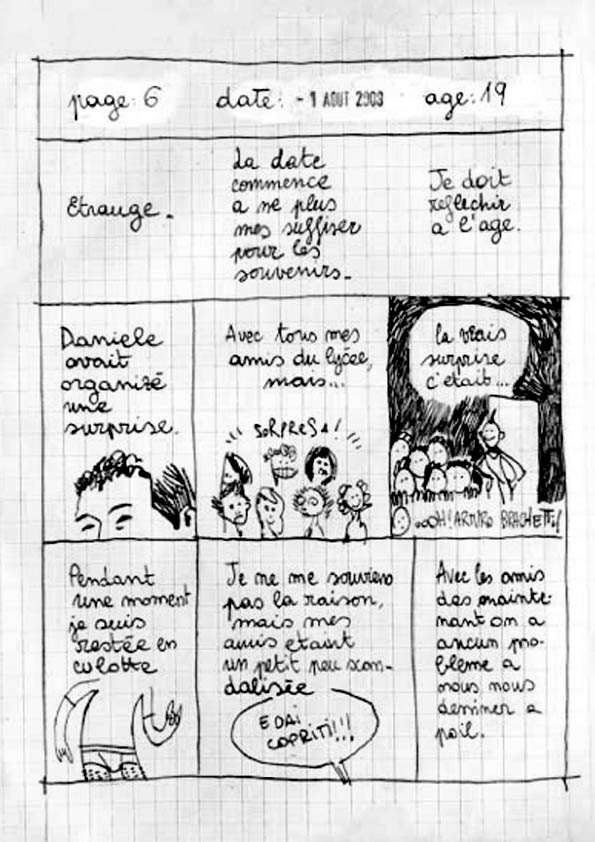 page: 6 date: - 1 AOUT 2003 age: 19
Etrange.
La date
commence
a ne plus
mes suffiser
pour les
souvenirs.
Je doit
reflechir
a l'age.
Daniele
avait
organisé
une
surprise.
Avec tous mes
amis du lycée,
mais...
SORPRESA!
la vrais
surprise
c'etait...
oooOH! ARTURO BRACHETTI!
Pendant
une moment
je suis
restée en
culotte
Je ne me souviens
pas la raison,
mais mes
amis etaint
un petit peu scan-
dalisée
E DAI
COPRITI!!!
Avec les amis
des mainte-
nant on a
aucun pro-
bleme a
nous nous
dessiner a
poil.